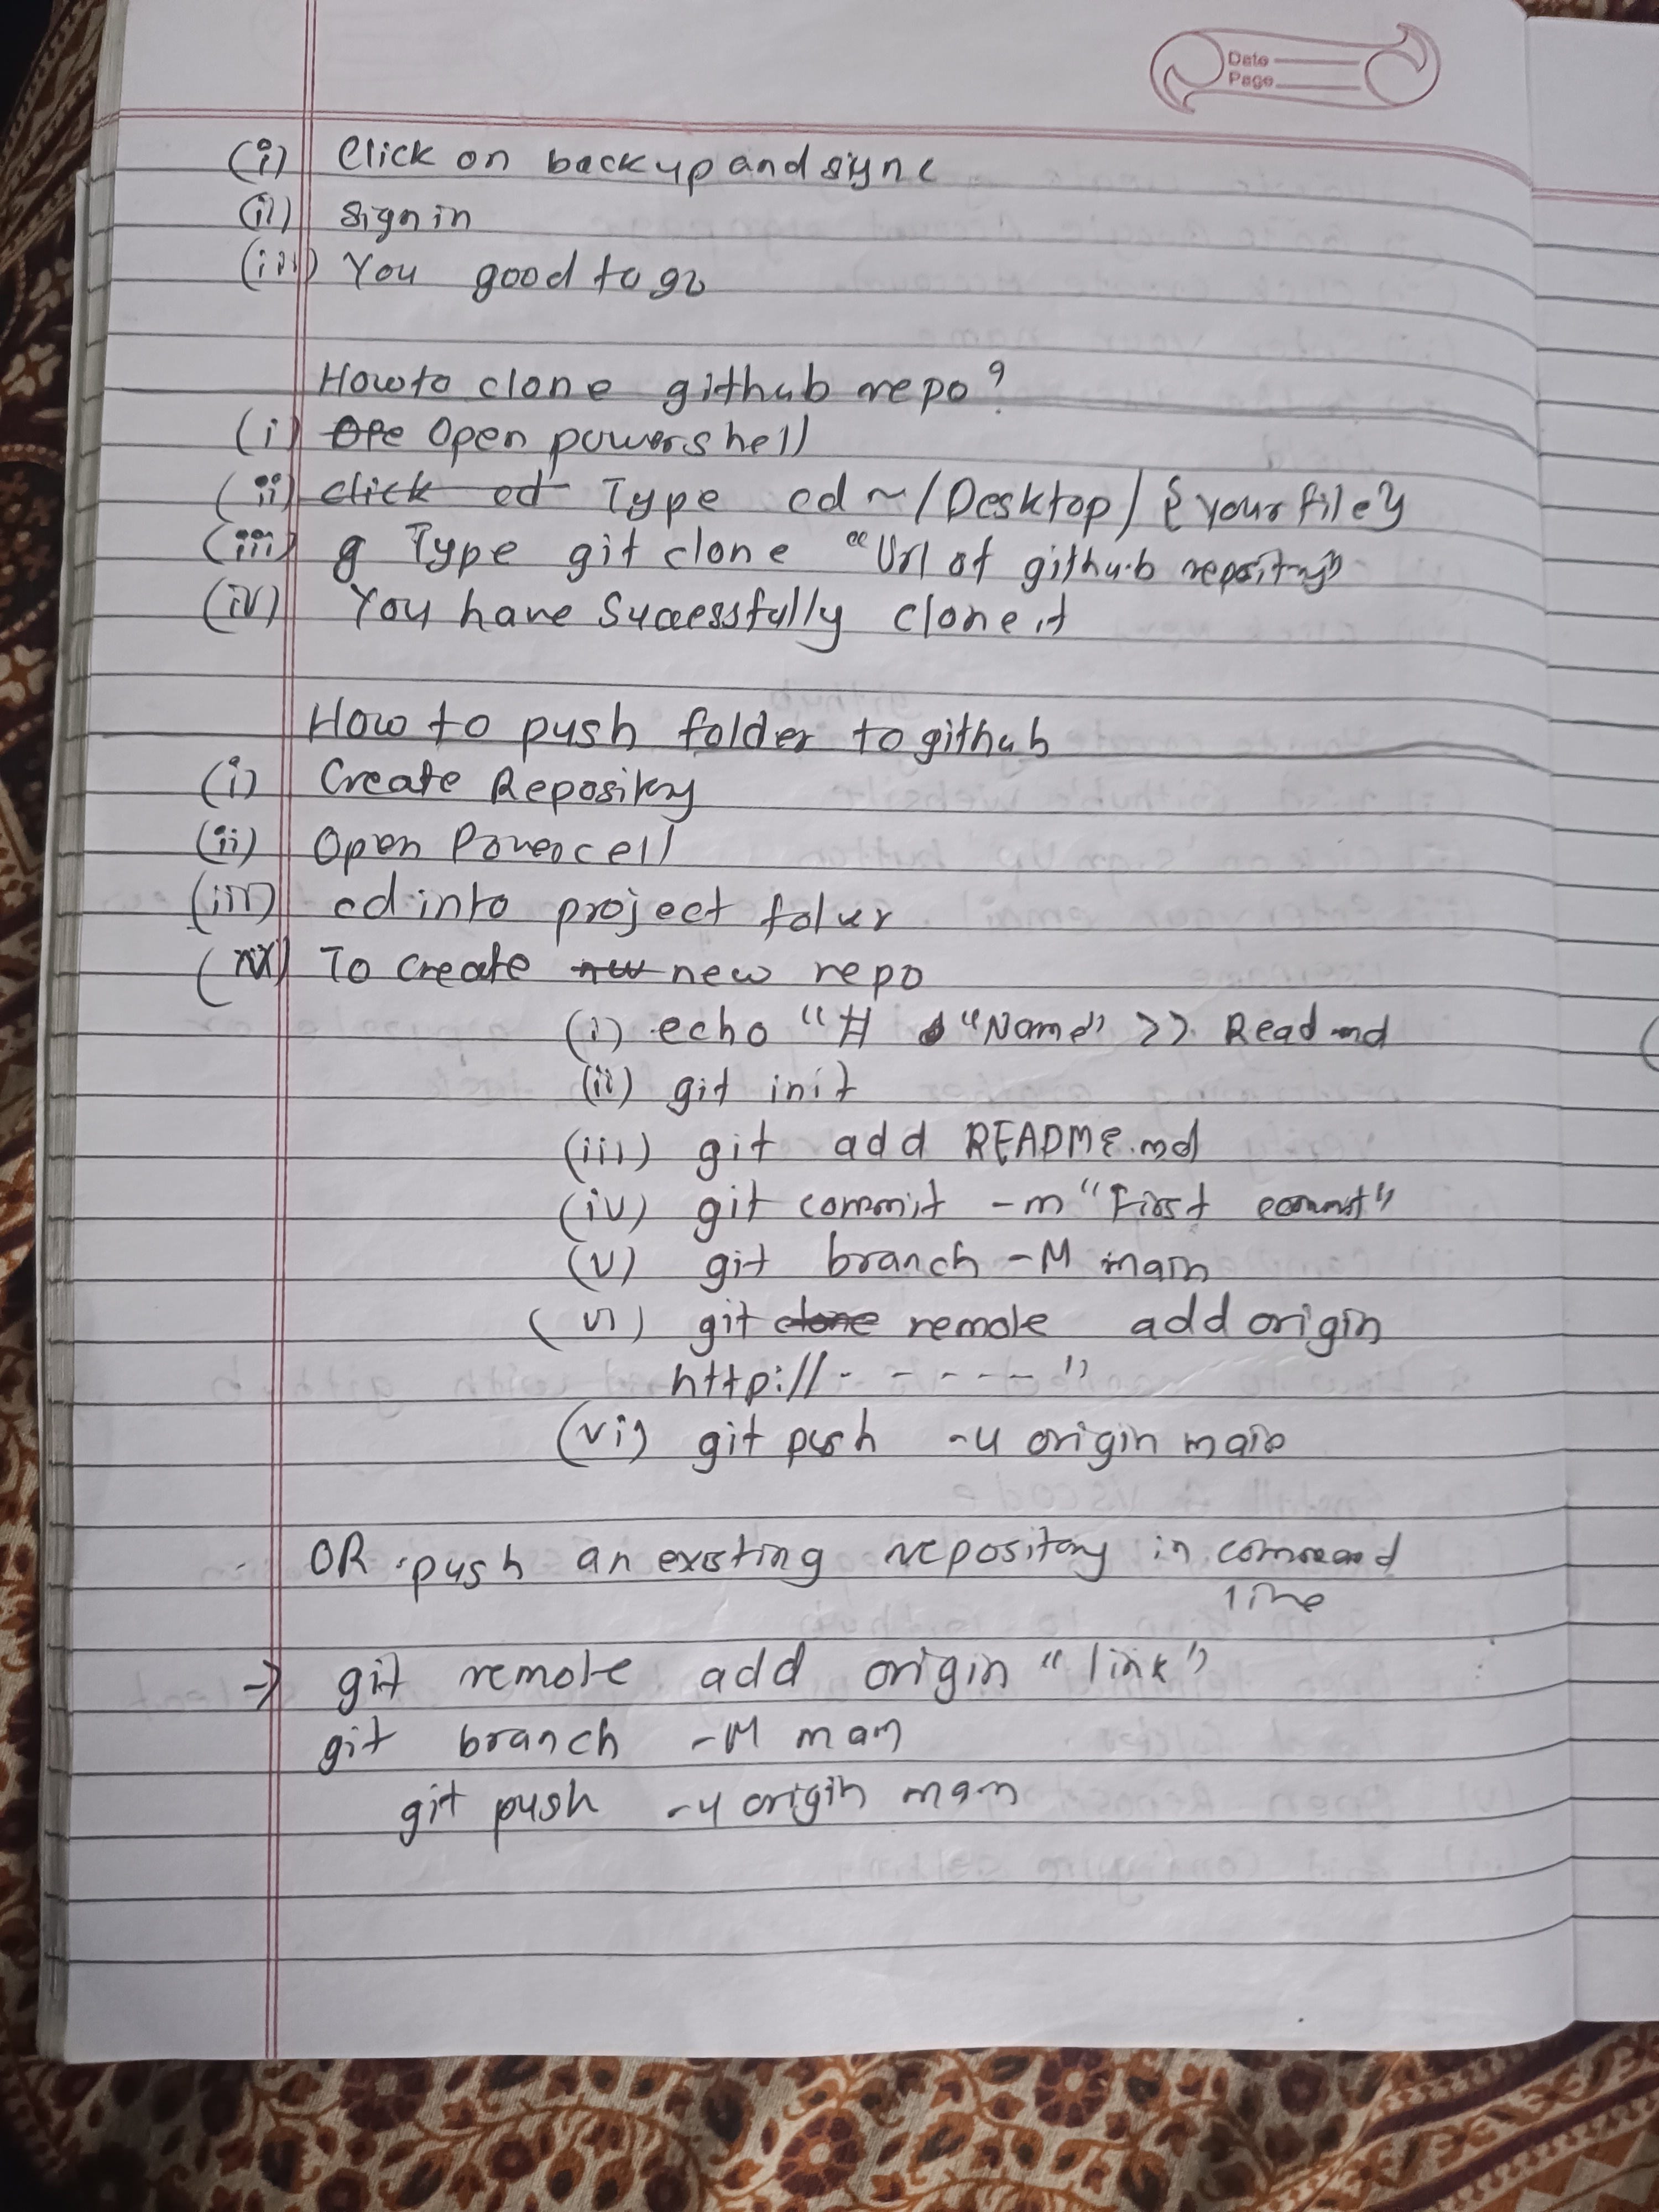 Date
Page
(i) Click on backup and sync
(ii) sign in
(iii) You good to go
How to clone github repo?
(i) Ope Open powershell
(ii) click cd Type cd ~/Desktop/{your file}
(iii) g Type git clone "Url of github repository"
(iv) You have Sucessfully clone it
How to push folder to github
(i) Create Repository
(ii) Open Powercell
(iii) cd into project
To create new new repo
(i) echo "# "Name" >> Readmd
(ii) git init
(iii) git add README.md
(iv) git commit -m "First commit"
(v) git branch -M main
(vi) git clone remote add origin
http://- - - - - "
(vi) git push -u origin main
OR push an existing repository in command
line
→ git remote add origin "link"
git branch -M man
git push -u origin man